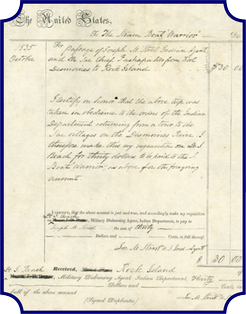 The United States,
To The Steam Boat Warrior Dr.
1835
October
The passage of Joseph M. Street Indian Agent
and the Sac Chief Pashapaho from Fort
Desmoines to Rock Island $30 00
I certify on honor that the above trip was
taken in obedience to the orders of the Indian
Department returning from a tour to the
Sac villages on the Desmoines River. I
therefore make this my requisition on
for thirty dollars to be paid to the
Boat Warrior, as above, for the foregoing
account.
I CERTIFY, that the above account is just and was, and accordingly make my requisition
Military Disbursing Agent, Indian Department, to pay to
Joseph M. Street the sum of thirty
Dollars and Cents, in full thereof.
Jos. M. Street
$ 30 00
Received, Rock Island
Military Disbursing Agent Indian Department, Thirty
Dollars and Cents in
full of the above account
(Signed Duplicates) Jos. M. Street